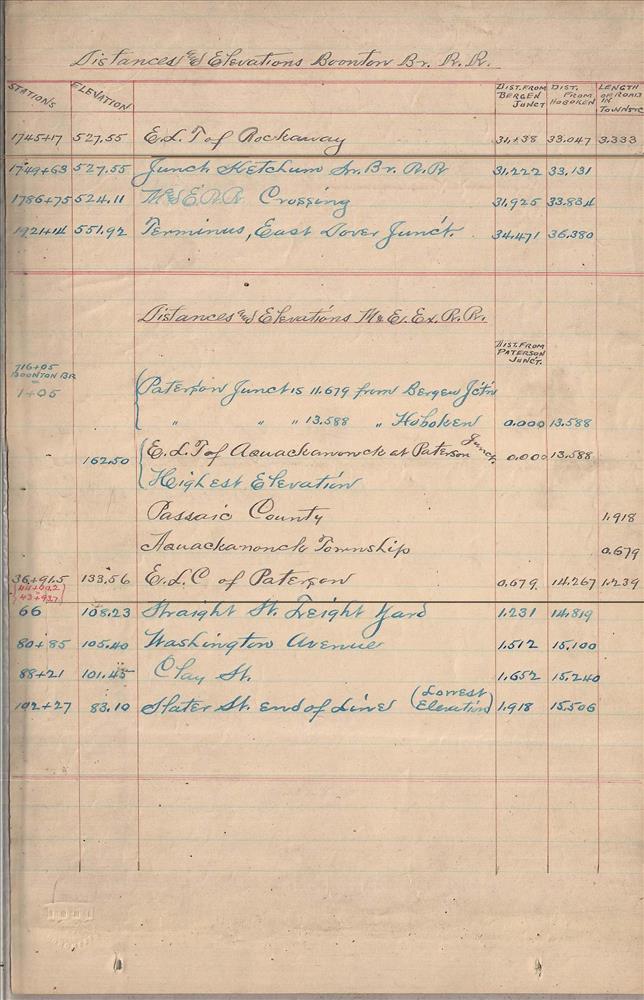 Distances and Elevations Boonton Br. R. R.
STATIONS ELEVATION DIST. FROM BERGEN JUNCT DIST. FROM HOBOKEN LENGTH OF ROAD IN TOWNS &C
1745+17 527.55 E. L. T of Rockaway 31.138 33.047 3.333
1749+63 527.55 Junct Ketchum Br. R. R 31.222 33.131
1786+75 524.11 M & E. R. R. Crossing 31.925 33.834
1921+14 551.92 Terminus, East Dover Junct. 34.471 36.380
Distances and Elevations M & E. Ex. R. R.
DIST. FROM PATERSON JUNC'T.
716+05
BOONTON BR
=
1+05
Paterson Junct is 11.679 from Bergen Jc'tn
" " " 13.588 " Hoboken 0.000 13.588
162.50 E. L. T of Aquackanonck at Paterson Junct. 0.000 13.588
Highest Elevation
Passaic County 1.918
Aquackanonck Township 0.679
36+91.5 133.56 E. L. C of Paterson 0.679 14.267 1.239
66 108.23 Straight St. Freight Yard 1.231 14.819
80+85 105.40 Washington Avenue 1.512 15.100
88+21 101.45 Clay St. 1.652 15.240
102+27 83.10 Slater St. end of Line (Lowest Elevation) 1.918 15.506